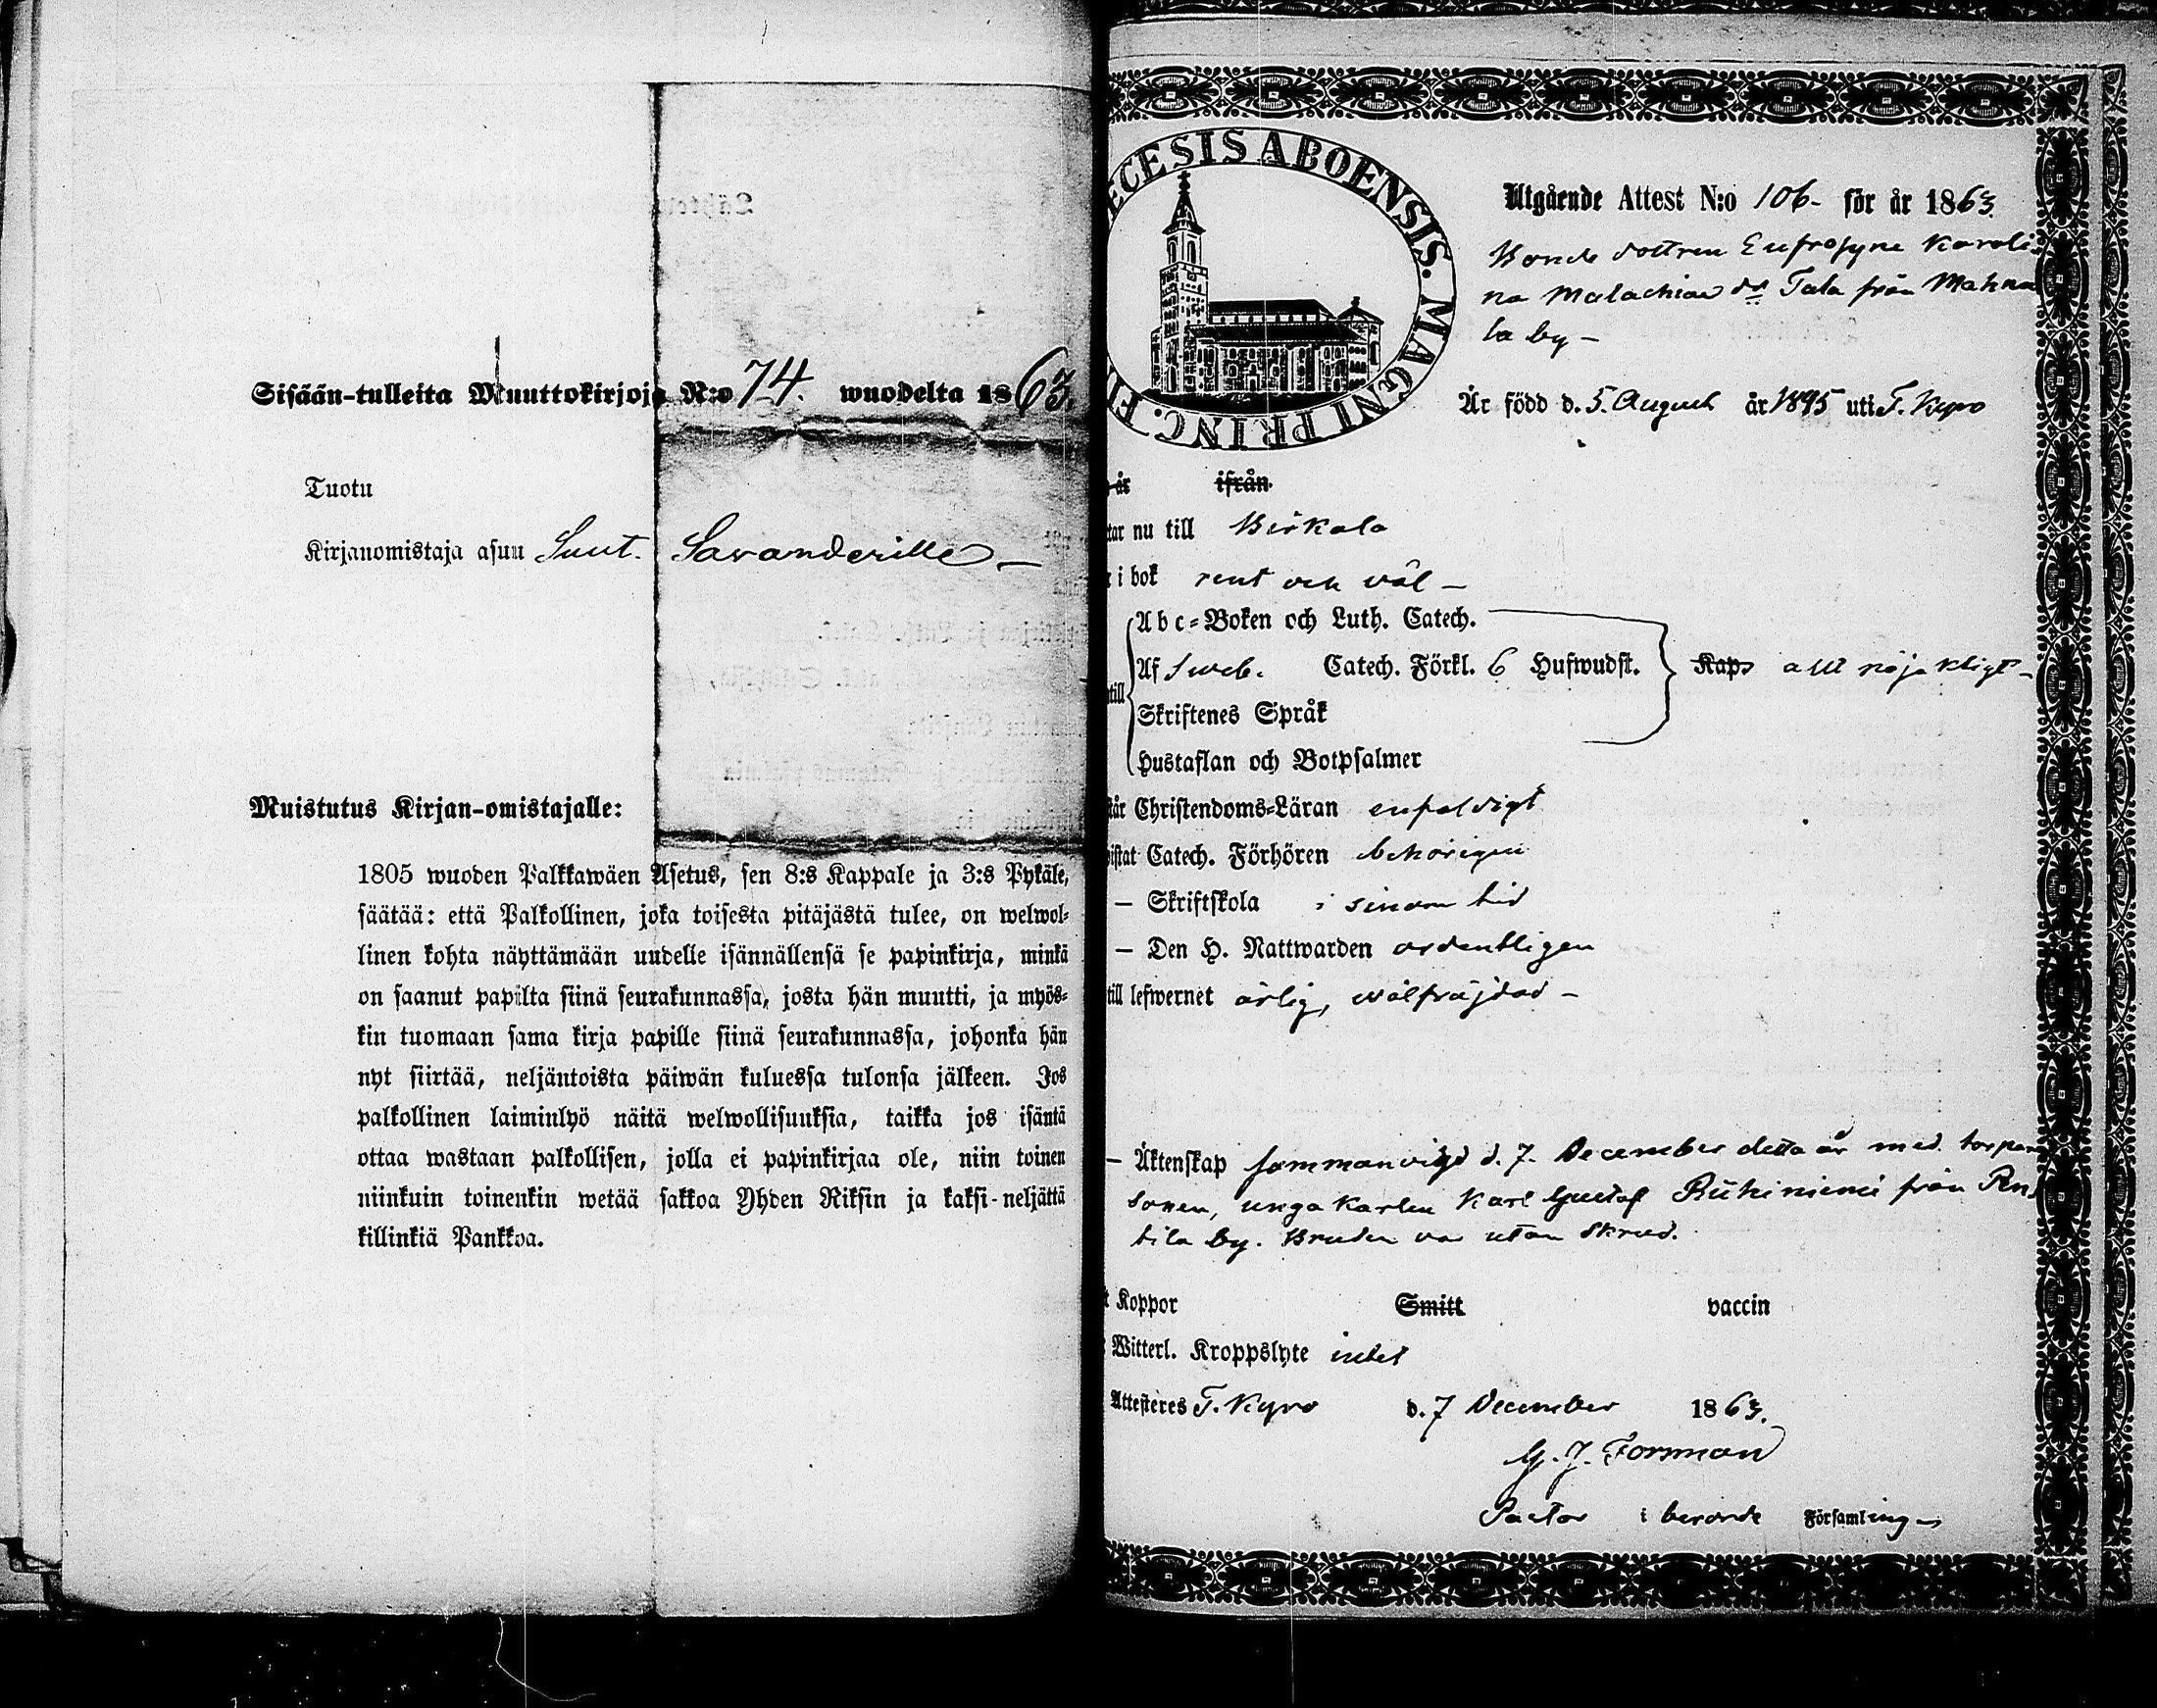 Sisään-tulleita Muuttokirjoja N:o 74. wuodelta 1863.
Tuotu
Kirjanomistaja asuu Suut. Savanderille –
Muistutus Kirjan-omistajalle:
1805 wuoden Palkkawäen Asetus, sen 8:s Kappale ja 3:s Pykäle,
säätää: että Palkollinen, joka toisesta pitäjästä tulee, on welwol-
linen kohta näyttämään uudelle isännällensä se papinkirja, minkä
on saanut papilta siinä seurakunnassa, josta hän muutti, ja myös-
kin tuomaan sama kirja papille siinä seurakunnassa, johonka hän
nyt siirtää, neljäntoista päiwän kuluessa tulonsa jälkeen. Jos
palkollinen laiminlyö näitä welwollisuuksia, taikka jos isäntä
ottaa wastaan palkollisen, jolla ei papinkirjaa ole, niin toinen
niinkuin toinenkin wetää sakkoa Yhden Riksin ja kaksi-neljättä
killinkiä Pankkoa.
ECESIS ABOENSIS. MAGNI PRINC. FI
Utgående Attest N:o 106- för år 1863.
Bonde dottren Eufrosyne Karoli
na Malachiae dr Tala från Mahna
la by –
Är född d. 5. August år 1845 uti T. Kyro
år ifrån
tar nu till Birkala
i bok rent och väl –
Abc-Boken och Luth. Catech.
Af Sveb. Catech. Förkl. 6 Hufwudst. Kap. allt nöjaktigt –
till
Skriftenes Språk
Hustaflan och Botpsalmer
tår Christendoms-Läran enfaldigt
istat Catech. Förhören behörigen
— Skriftskola i sinom tid
— Den H. Nattwarden ordentligen
till lefwernet ärlig, wälfräjdad –
— Äktenskap sammanvigd d. 7. December detta år med torpare
sonen, unga karlen Karl Gustaf Riihiniemi från Pen
tila by. Bruden var utan skrud.
Koppor Smitt vaccin
Witterl. Kroppslyte intet
Attesteres T. Kyro d. 7 December 1863.
G. J. Forsman
Pastor i berörde Församling –